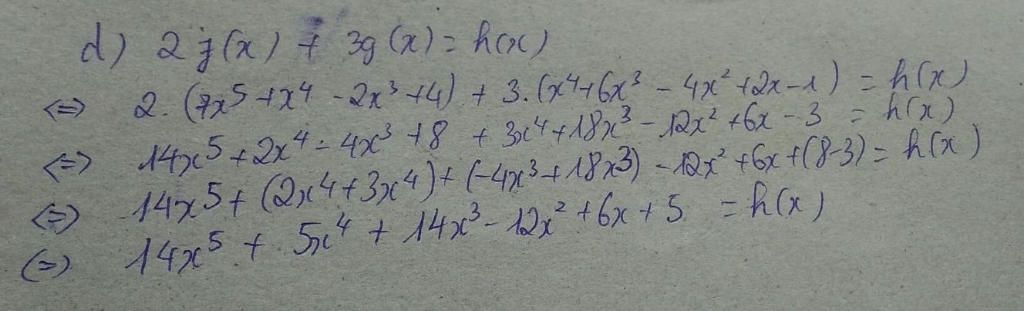 d) 2f(x) + 3g(x) = h(x)
<=> 2.(7x⁵+x⁴ -2x³+4) + 3.(x⁴+6x³ - 4x²+2x-1) = h(x)
<=> 14x⁵+2x⁴- 4x³ +8 + 3x⁴+18x³- 12x² +6x - 3 = h(x)
<=> 14x⁵+(2x⁴+3x⁴)+(-4x³+18x³) -12x²+6x+(8-3)= h(x)
(=) 14x⁵ + 5x⁴ + 14x³- 12x² +6x+5 = h(x)